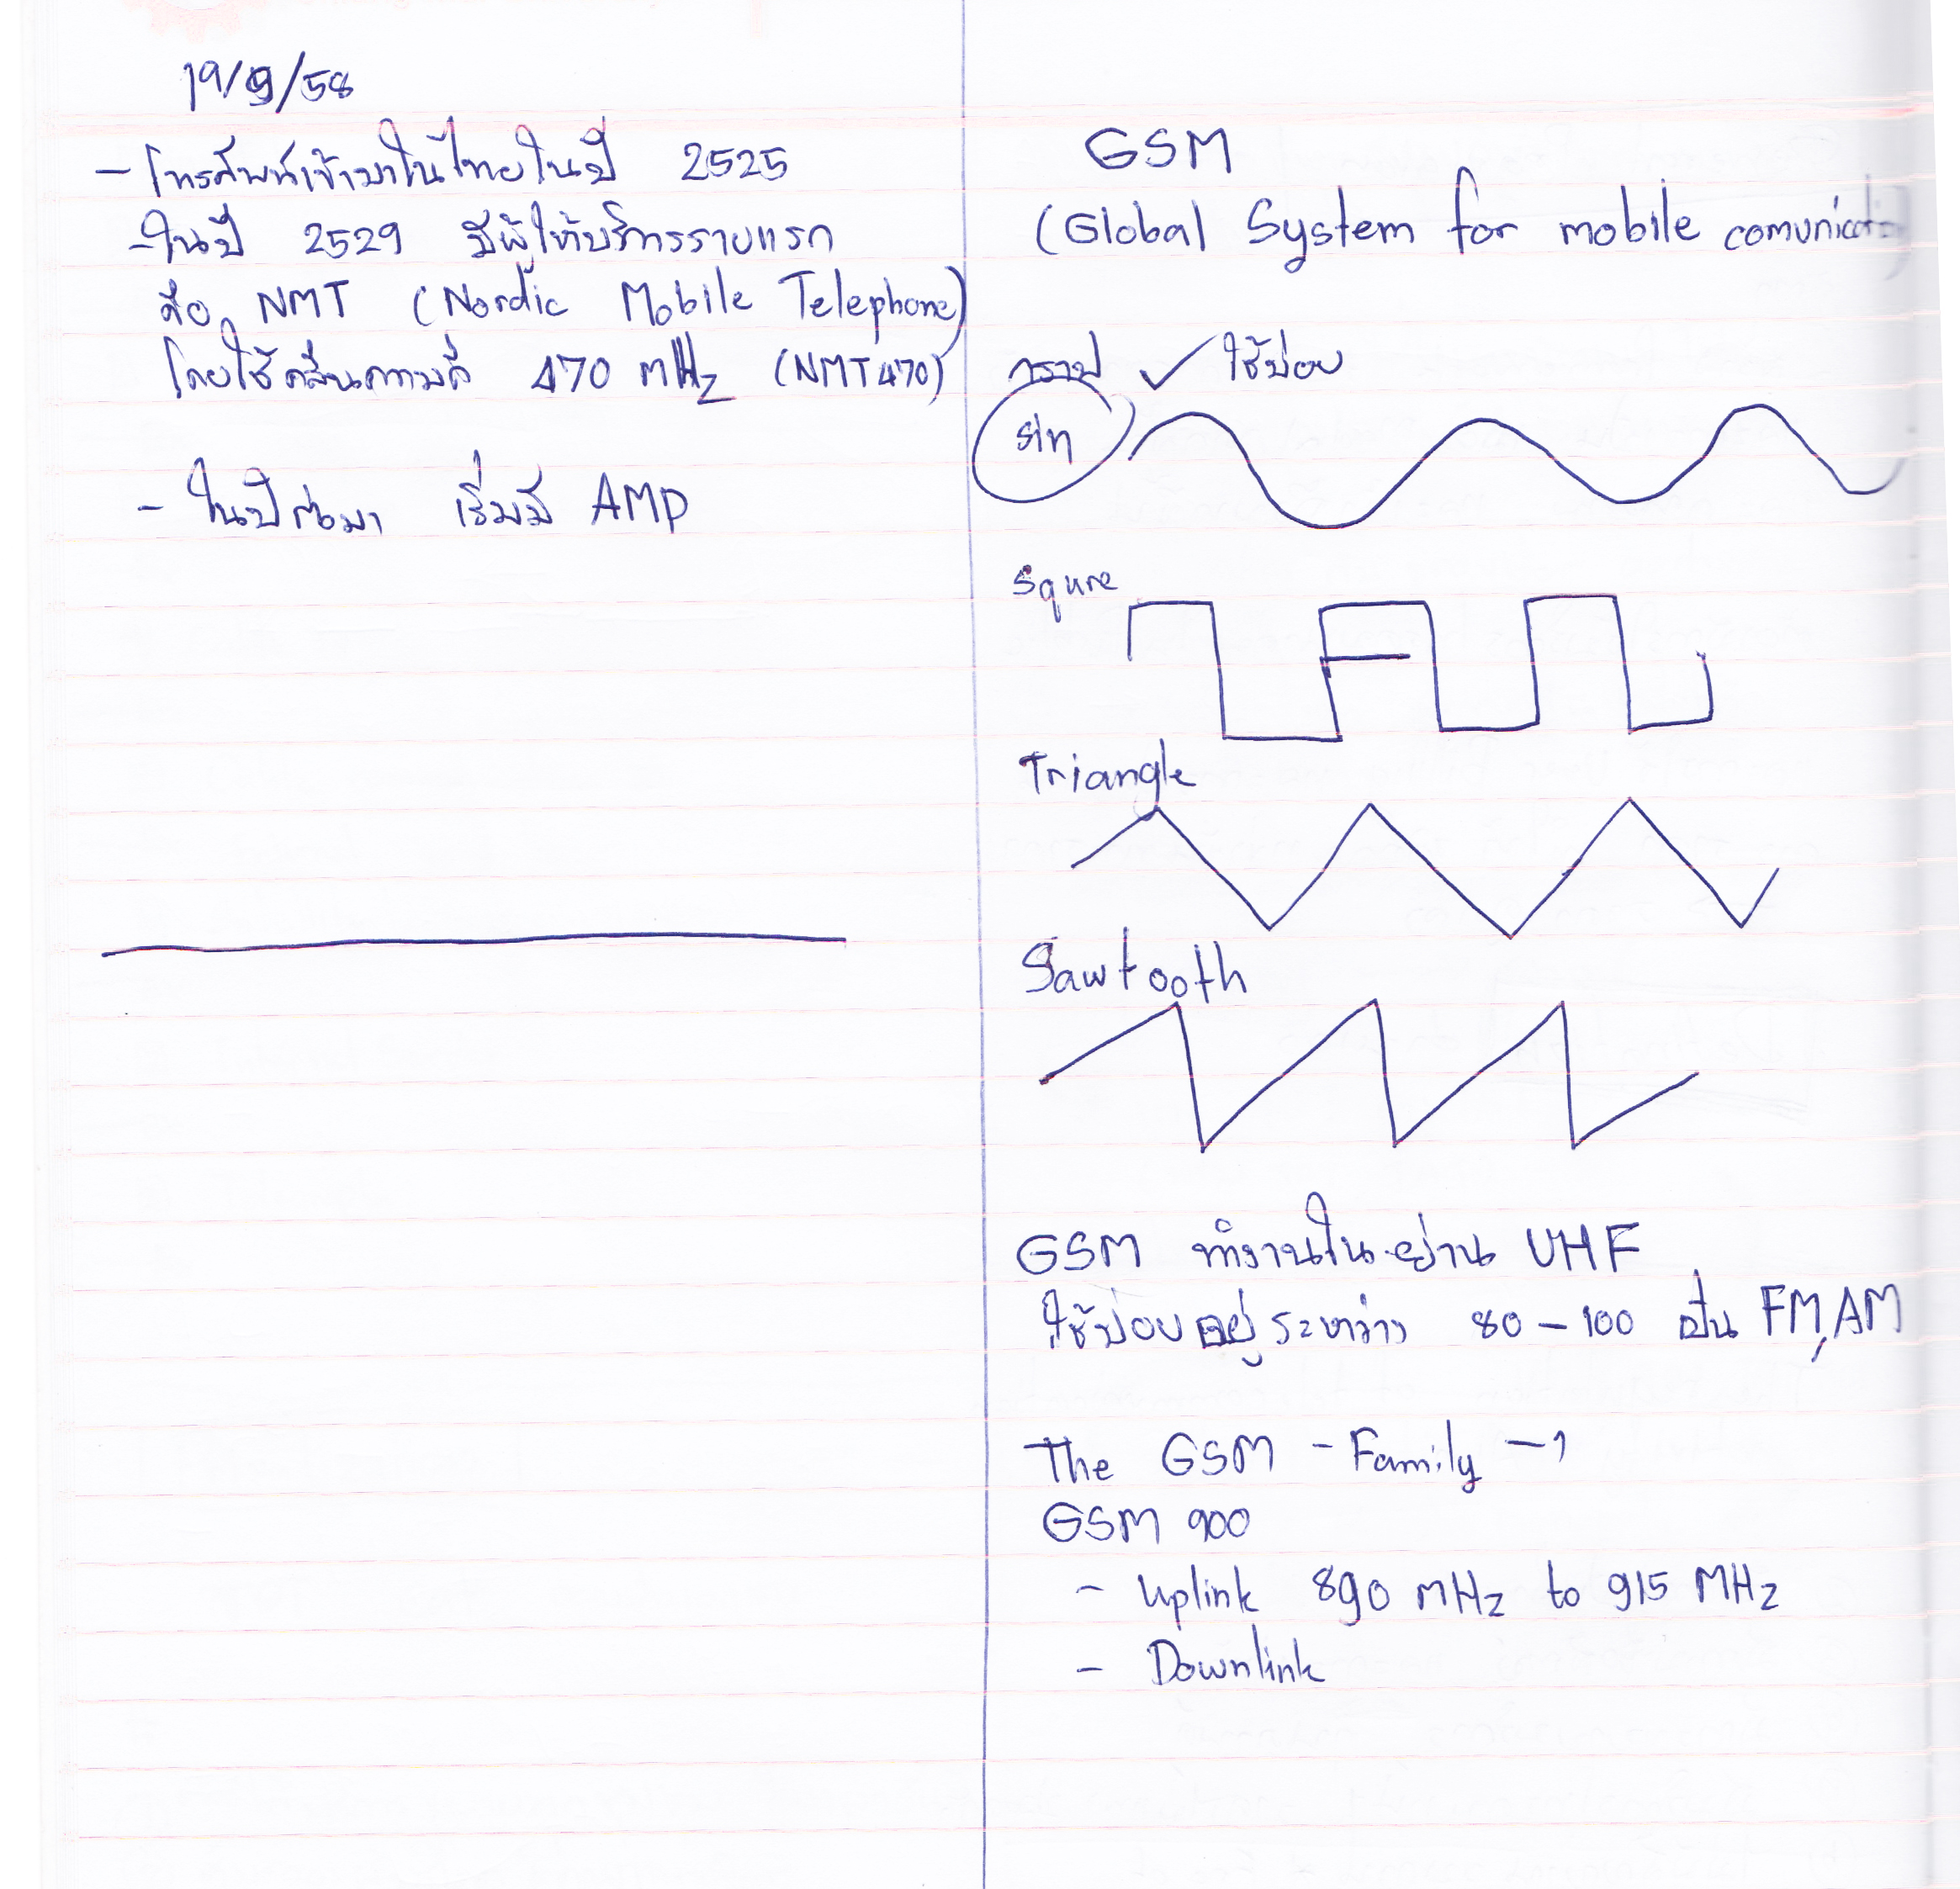 19/9/58
- โทรศัพท์เข้ามาในไทยในปี 2525
- ในปี 2529 มีผู้ให้บริการรายแรก
คือ NMT (Nordic Mobile Telephone)
โดยใช้คลื่นความถี่ 470 mHz (NMT470)
- ในปีต่อมา เริ่มมี AMP
GSM
(Global System for mobile comunicati
กราป ✓ ใช้บ่อย
sin
Squre
Triangle
Sawtooth
GSM ทำงานในย่าน UHF
ใช้บ่อยอยู่ระหว่าง 80 - 100 เป็น FM, AM
The GSM - Family - 1
GSM 900
- Uplink 890 mHz to 915 MHz
- Downlink